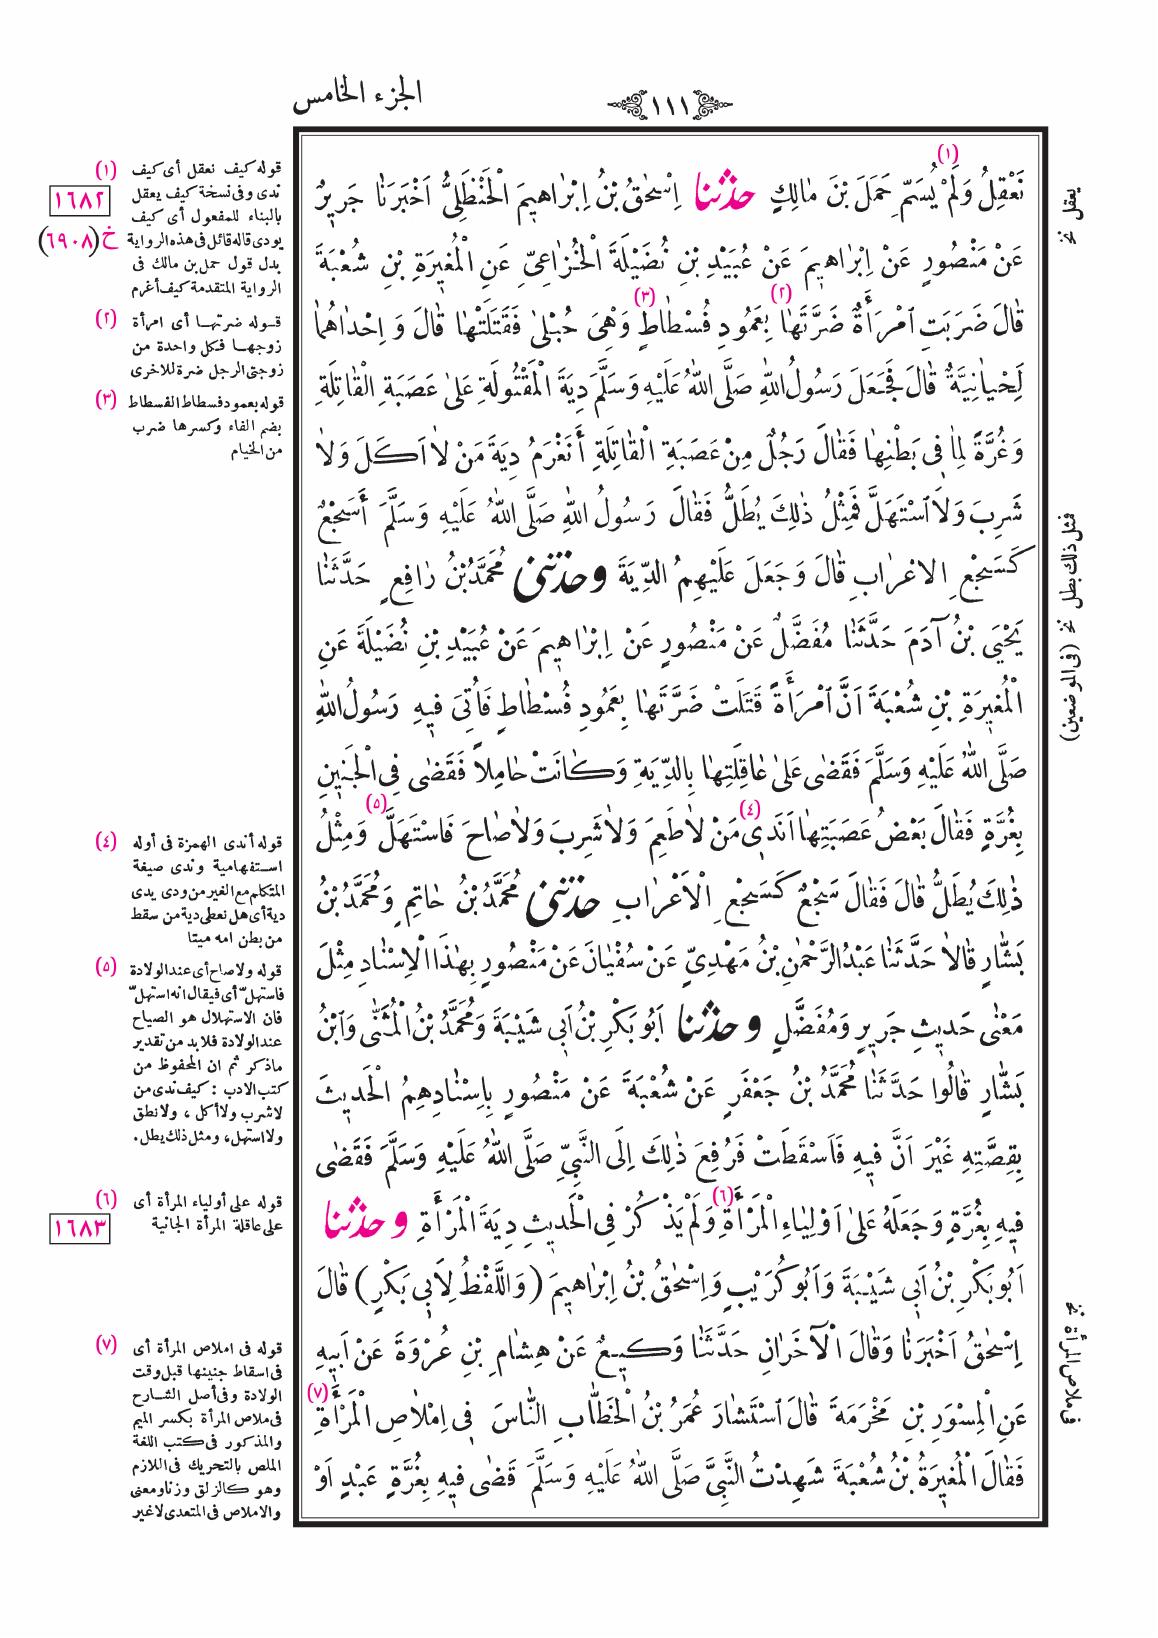 الجزء الخامس
١١١
نَعْقِلُ وَلَمْ يُسَمِّ حَمَلَ بْنَ مَالِكٍ حدثنا اِسْحٰقُ بْنُ اِبْرَاهِيمَ الْحَنْظَلِيُّ اَخْبَرَنَا جَرِيرٌ
عَنْ مَنْصُورٍ عَنْ اِبْرَاهِيمَ عَنْ عُبَيْدِ بْنِ نُضَيْلَةَ الْخُزَاعِيِّ عَنِ الْمُغِيرَةِ بْنِ شُعْبَةَ
قَالَ ضَرَبَتِ امْرَأَةٌ ضَرَّتَهَا بِعَمُودِ فُسْطَاطٍ وَهِيَ حُبْلىٰ فَقَتَلَتْهَا قَالَ وَ اِحْدَاهُمَا
لِحْيَانِيَّةٌ قَالَ فَجَعَلَ رَسُولُ اللهِ صَلَّى اللهُ عَلَيْهِ وَسَلَّمَ دِيَةَ الْمَقْتُولَةِ عَلىٰ عَصَبَةِ الْقَاتِلَةِ
وَغُرَّةً لِمَا فِي بَطْنِهَا فَقَالَ رَجُلٌ مِنْ عَصَبَةِ الْقَاتِلَةِ أَنَغْرَمُ دِيَةَ مَنْ لاَ اَكَلَ وَلاَ
شَرِبَ وَلاَ اسْتَهَلَّ فَمِثْلُ ذٰلِكَ يُطَلُّ فَقَالَ رَسُولُ اللهِ صَلَّى اللهُ عَلَيْهِ وَسَلَّمَ أَسَجْعٌ
كَسَجْعِ الاَعْرَابِ قَالَ وَجَعَلَ عَلَيْهِمُ الدِّيَةَ وحدثني مُحَمَّدُ بْنُ رَافِعٍ حَدَّثَنَا
يَحْيَى بْنُ آدَمَ حَدَّثَنَا مُفَضَّلٌ عَنْ مَنْصُورٍ عَنْ اِبْرَاهِيمَ عَنْ عُبَيْدِ بْنِ نُضَيْلَةَ عَنِ
الْمُغِيرَةِ بْنِ شُعْبَةَ اَنَّ امْرَأَةً قَتَلَتْ ضَرَّتَهَا بِعَمُودِ فُسْطَاطٍ فَاُتِيَ فِيهِ رَسُولُ اللهِ
صَلَّى اللهُ عَلَيْهِ وَسَلَّمَ فَقَضىٰ عَلىٰ عَاقِلَتِهَا بِالدِّيَةِ وَكَانَتْ حَامِلاً فَقَضىٰ فِي الْجَنِينِ
بِغُرَّةٍ فَقَالَ بَعْضُ عَصَبَتِهَا اَنَدِي مَنْ لاَ طَعِمَ وَلاَ شَرِبَ وَلاَ صَاحَ فَاسْتَهَلَّ وَمِثْلُ
ذٰلِكَ يُطَلُّ قَالَ فَقَالَ سَجْعٌ كَسَجْعِ الْاَعْرَابِ حدثني مُحَمَّدُ بْنُ حَاتِمٍ وَمُحَمَّدُ بْنُ
بَشَّارٍ قَالاَ حَدَّثَنَا عَبْدُ الرَّحْمٰنِ بْنُ مَهْدِيٍّ عَنْ سُفْيَانَ عَنْ مَنْصُورٍ بِهٰذَا الْاِسْنَادِ مِثْلَ
مَعْنىٰ حَدِيثِ جَرِيرٍ وَمُفَضَّلٍ وحدثنا اَبُو بَكْرِ بْنُ اَبِي شَيْبَةَ وَمُحَمَّدُ بْنُ الْمُثَنّٰى وَابْنُ
بَشَّارٍ قَالُوا حَدَّثَنَا مُحَمَّدُ بْنُ جَعْفَرٍ عَنْ شُعْبَةَ عَنْ مَنْصُورٍ بِاِسْنَادِهِمُ الْحَدِيثَ
بِقِصَّتِهِ غَيْرَ اَنَّ فِيهِ فَاَسْقَطَتْ فَرُفِعَ ذٰلِكَ اِلَى النَّبِيِّ صَلَّى اللهُ عَلَيْهِ وَسَلَّمَ فَقَضىٰ
فِيهِ بِغُرَّةٍ وَجَعَلَهُ عَلىٰ اَوْلِيَاءِ الْمَرْأَةِ وَلَمْ يَذْكُرْ فِي الْحَدِيثِ دِيَةَ الْمَرْأَةِ وحدثنا
اَبُو بَكْرِ بْنُ اَبِي شَيْبَةَ وَاَبُو كُرَيْبٍ وَاِسْحٰقُ بْنُ اِبْرَاهِيمَ (وَاللَّفْظُ لِاَبِي بَكْرٍ) قَالَ
اِسْحٰقُ اَخْبَرَنَا وَقَالَ الْآخَرَانِ حَدَّثَنَا وَكِيعٌ عَنْ هِشَامِ بْنِ عُرْوَةَ عَنْ اَبِيهِ
عَنِ الْمِسْوَرِ بْنِ مَخْرَمَةَ قَالَ اسْتَشَارَ عُمَرُ بْنُ الْخَطَّابِ النَّاسَ فِي اِمْلاَصِ الْمَرْأَةِ
فَقَالَ الْمُغِيرَةُ بْنُ شُعْبَةَ شَهِدْتُ النَّبِيَّ صَلَّى اللهُ عَلَيْهِ وَسَلَّمَ قَضىٰ فِيهِ بِغُرَّةٍ عَبْدٍ اَوْ
يعقل نخ
فمثل ذلك بطل نخ (فى الموضعين)
فى ملاص المرأة نخ
(١) قوله كيف نعقل أى كيف
ندى وفى نسخة كيف يعقل
بالبناء للمفعول أى كيف
يودى قاله قائل فى هذه الرواية
بدل قول حمل بن مالك فى
الرواية المتقدمة كيف أغرم
١٦٨٢
خ (٦٩٠٨)
(٢) قوله ضرتها أى امرأة
زوجها فكل واحدة من
زوجتى الرجل ضرة للاخرى
(٣) قوله بعمود فسطاط الفسطاط
بضم الفاء وكسرها ضرب
من الخيام
(٤) قوله أندى الهمزة فى أوله
استفهامية وندى صيغة
المتكلم مع الغير من ودى يدى
دية أى هل نعطى دية من سقط
من بطن امه ميتا
(٥) قوله ولاصاح أى عند الولادة
فاستهلّ أى فيقال انه استهلّ
فان الاستهلال هو الصياح
عند الولادة فلا بد من تقدير
ما ذكر ثم ان المحفوظ من
كتب الادب : كيف ندى من
لا شرب ولا أكل ، ولا نطق
ولا استهل، ومثل ذلك يطل.
(٦) قوله على أولياء المرأة أى
على عاقلة المرأة الجانية
١٦٨٣
(٧) قوله فى املاص المرأة أى
فى اسقاط جنينها قبل وقت
الولادة وفى أصل الشارح
فى ملاص المرأة بكسر الميم
والمذكور فى كتب اللغة
الملص بالتحريك فى اللازم
وهو كالزلق وزنا ومعنى
والاملاص فى المتعدى لاغير